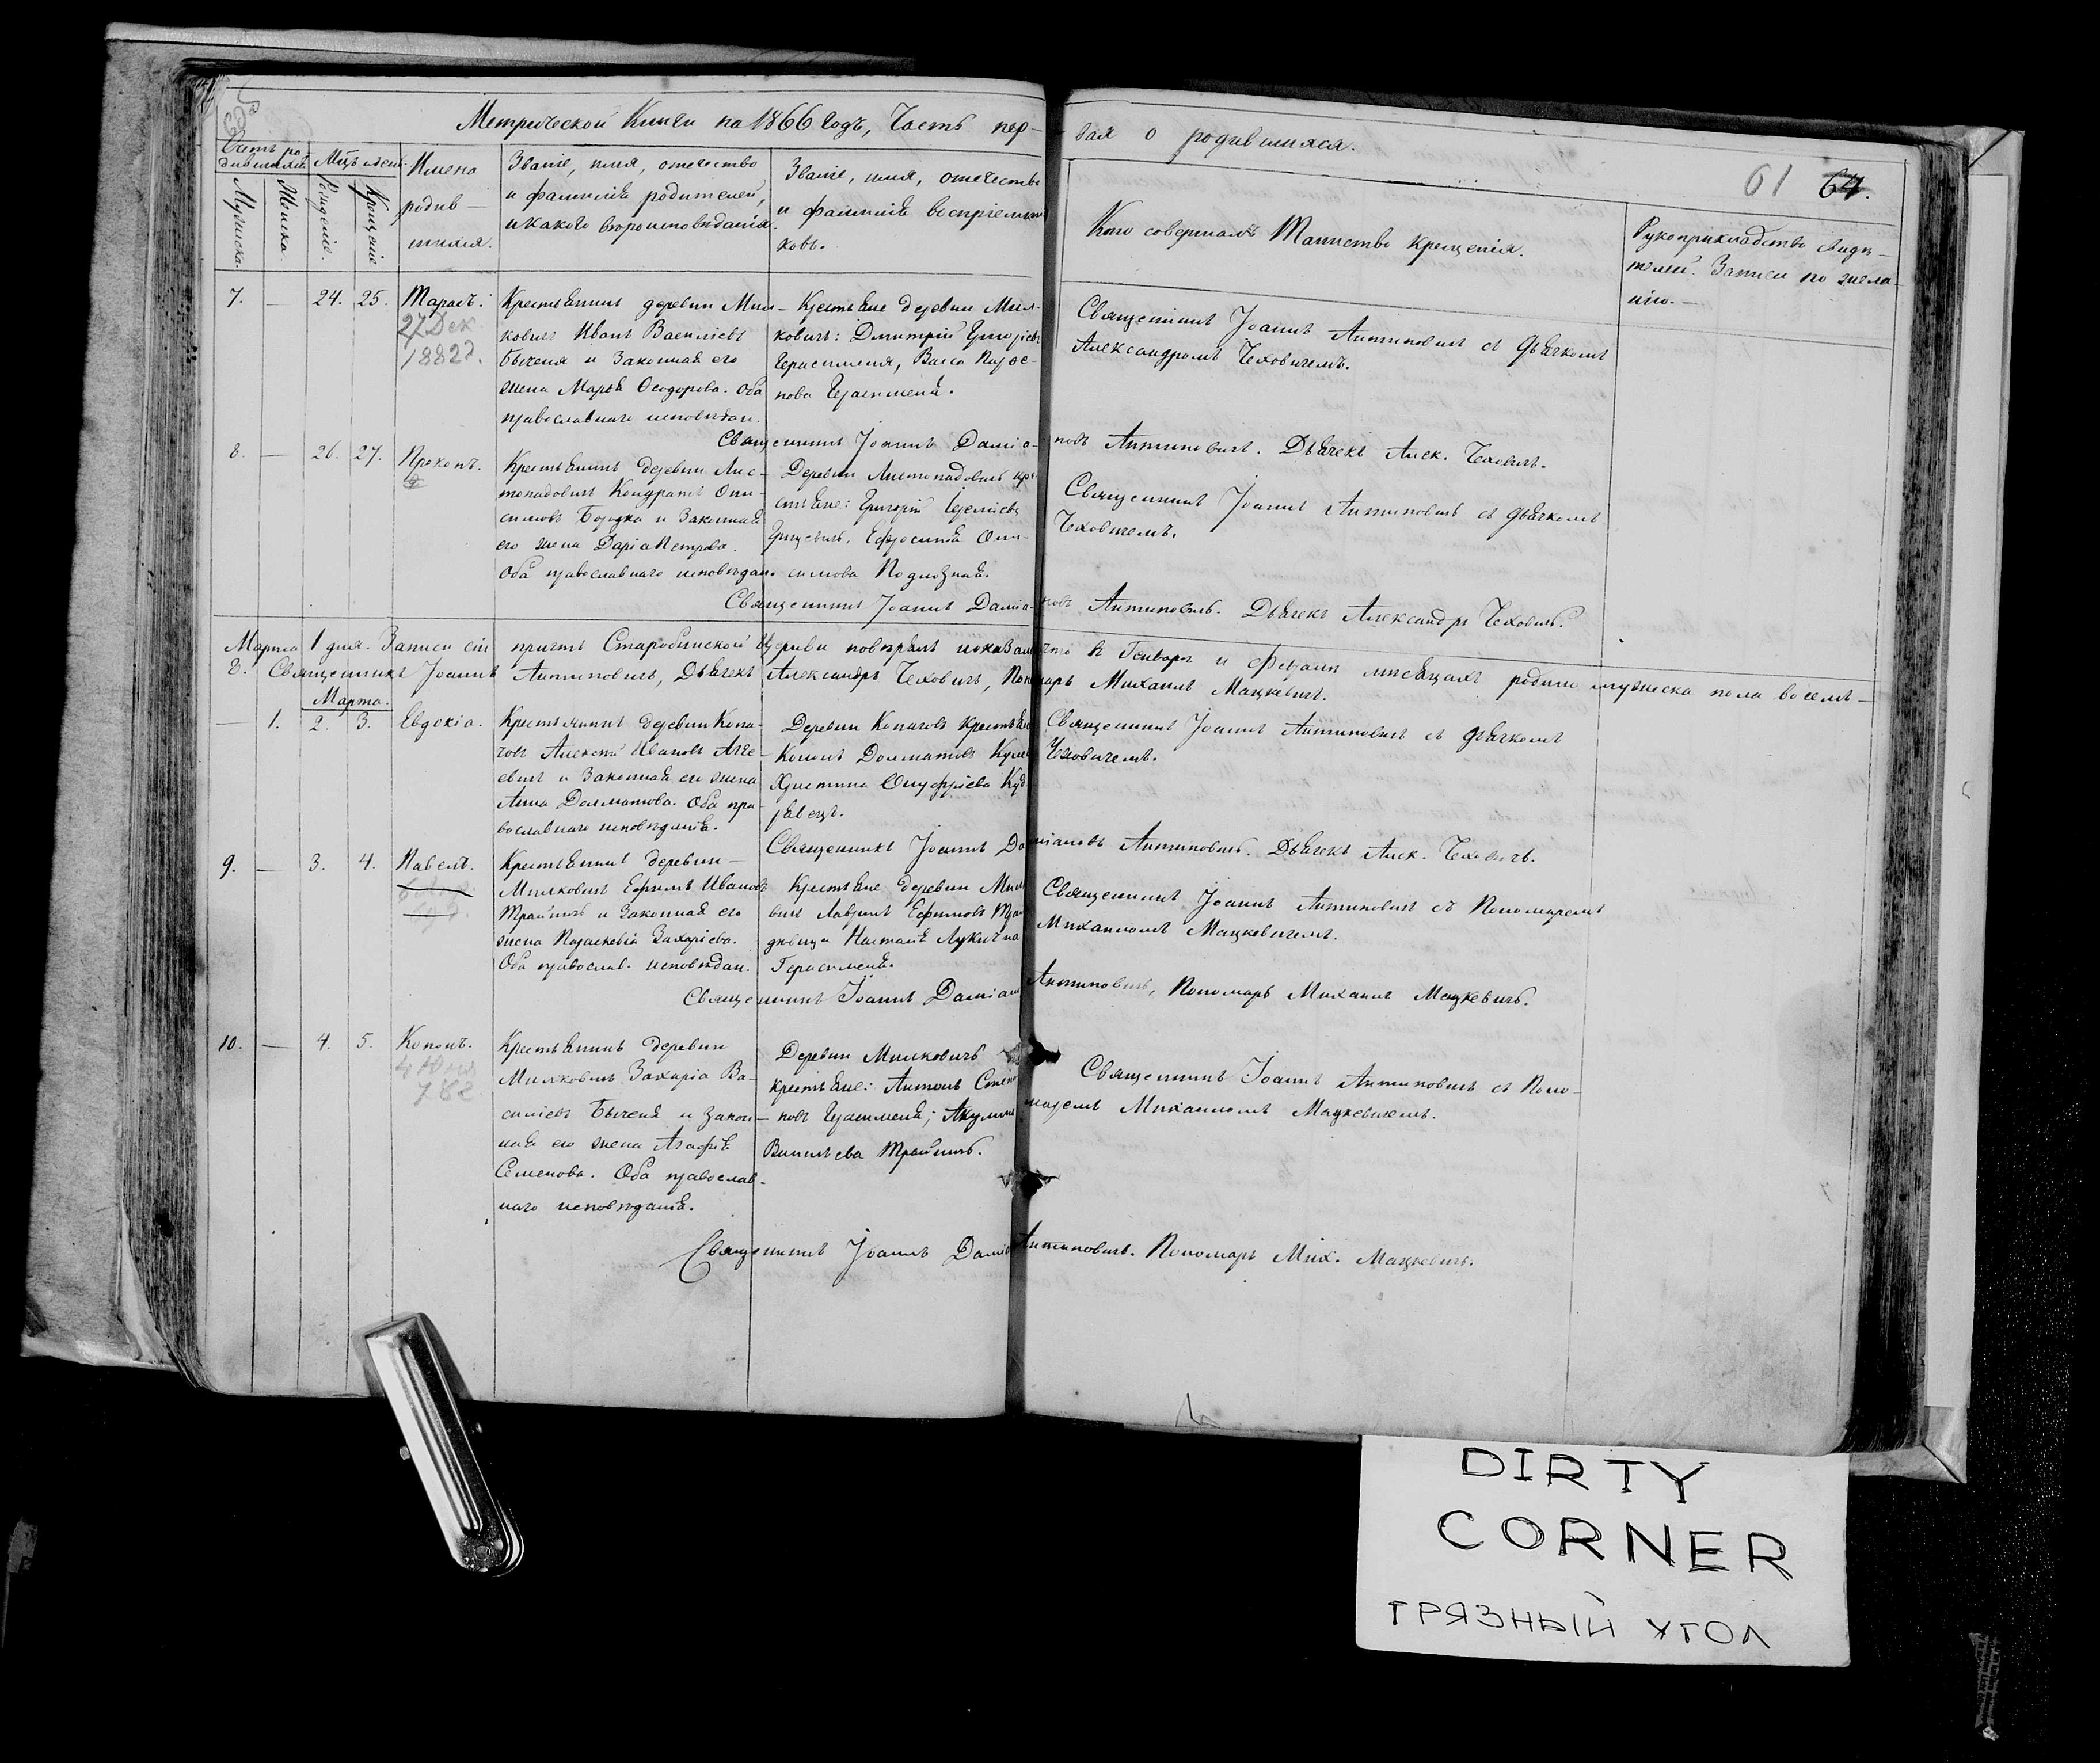 Метрической Книги на 1866 годъ, Часть пер-
вая о родившихся.
61 64.
Счетъ ро-
дившихся.
Мужеска.
Женска.
Мѣс. и день
Рожденія.
Крещенія.
Имена
родив-
шихся.
Званіе, имя, отечество
и фамилія родителей,
и какого вѣроисповѣданія.
Званіе, имя, отечество
и фамилія воспріемни
ковъ.
Кто совершалъ Таинство Крещенія.
Рукоприкладство свидѣ-
телей Записи по жела-
нію.
7. — 24. 25. Тарасъ.
27 Дек
1882г.
Крестьянинъ деревни Мил-
ковичъ Иванъ Васильевъ
Быченя и Законная его
жена Марія Ѳеодорова. Оба
православнаго исповѣдан.
Крестьяне деревни Мил-
ковичъ: Дмитрій Григорьевъ
Герасименя, Васса
нова Герасименя.
Священникъ Іоаннъ Антиповичъ съ дьячкомъ
Александромъ Чеховичемъ.
Священникъ Іоаннъ Даміа-
новъ Антиповичъ. Дьячекъ Алек. Чеховичъ.
8. — 26. 27. Прокопъ.
Крестьянинъ деревни Лис-
топадовичъ Кондратъ Они-
симовъ Бородко и Законная
его жена Дарія Петрова.
Оба православнаго исповѣдан.
Деревни Листопадовичъ кре-
стьяне: Григорій
Грицевичъ, Ефросинія Они-
симова
Священникъ Іоаннъ Антиповичъ съ дьячкомъ
Чеховичемъ.
Священникъ Іоаннъ Даміа-
новъ Антиповичъ. Дьячекъ Александръ Чеховичъ.
Марта 1 дня. Записи сіи причтъ Старобинской Церкви повѣрялъ и показалъ что въ Генварѣ и Февралѣ мѣсяцахъ родило мужеска пола восемь —
8. Священникъ Іоаннъ Антиповичъ, Дьячекъ Александръ Чеховичъ, Пономарь Михаилъ Мацкевичъ.
Марта.
— 1. 2. 3. Евдокія.
Крестьянинъ деревни Копа-
човъ Алексѣй Ивановъ Аге-
евичъ и Законная его жена
Анна Долматова. Оба пра-
вославнаго исповѣданія.
Деревни Копачовъ крестьяне
Кононъ Долматовъ
Христина Онуфріева Куд-
рявецъ.
Священникъ Іоаннъ Антиповичъ съ дьячкомъ
Чеховичемъ.
Священникъ Іоаннъ Даміановъ Антиповичъ. Дьячекъ Алек. Чеховичъ.
9. — 3. 4. Павелъ.
Крестьянинъ деревни
Милковичъ Ефимъ Ивановъ
Трайничъ и Законная его
жена Параскевія Захаріева.
Оба православ. исповѣдан.
Крестьяне деревни Милко
вичъ Лавринъ Ефимовъ
дѣвица Наталія Лукична
Герасименя.
Священникъ Іоаннъ Антиповичъ съ Пономаремъ
Михаиломъ Мацкевичемъ.
Священникъ Іоаннъ Даміан Антиповичъ, Пономарь Михаилъ Мацкевичъ.
10. — 4. 5. Кононъ.
Крестьянинъ деревни
Милковичъ Захарія Ва-
сильевъ Быченя и закон-
ная его жена Агафія
Семенова. Оба православ-
наго исповѣданія.
Деревни Милковичъ
крестьяне: Антонъ Степа
новъ Герасименя; Акулина
Васильева Трайничъ.
Священникъ Іоаннъ Антиповичъ съ Поно-
маремъ Михаиломъ Мацкевичемъ.
Священникъ Іоаннъ Даміа Антиповичъ. Пономарь Мих. Мацкевичъ.
DIRTY
CORNER
ГРЯЗНЫЙ УГОЛ